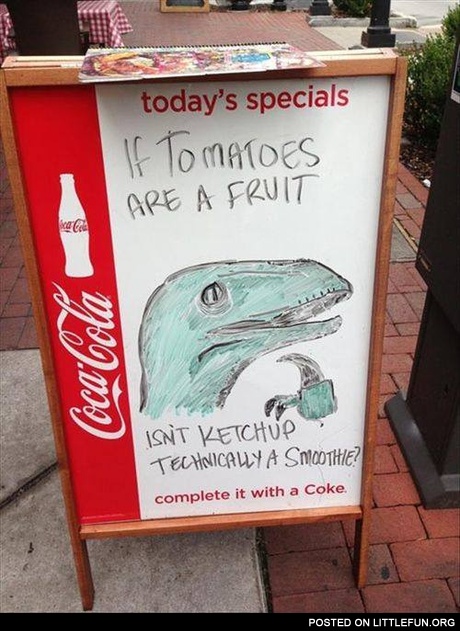 today's specials
If TOMATOES
ARE A FRUIT
Coca-Cola
Coca-Cola
ISN'T KETCHUP
TECHNICALLY A SMOOTHIE?
complete it with a Coke.
POSTED ON LITTLEFUN.ORG